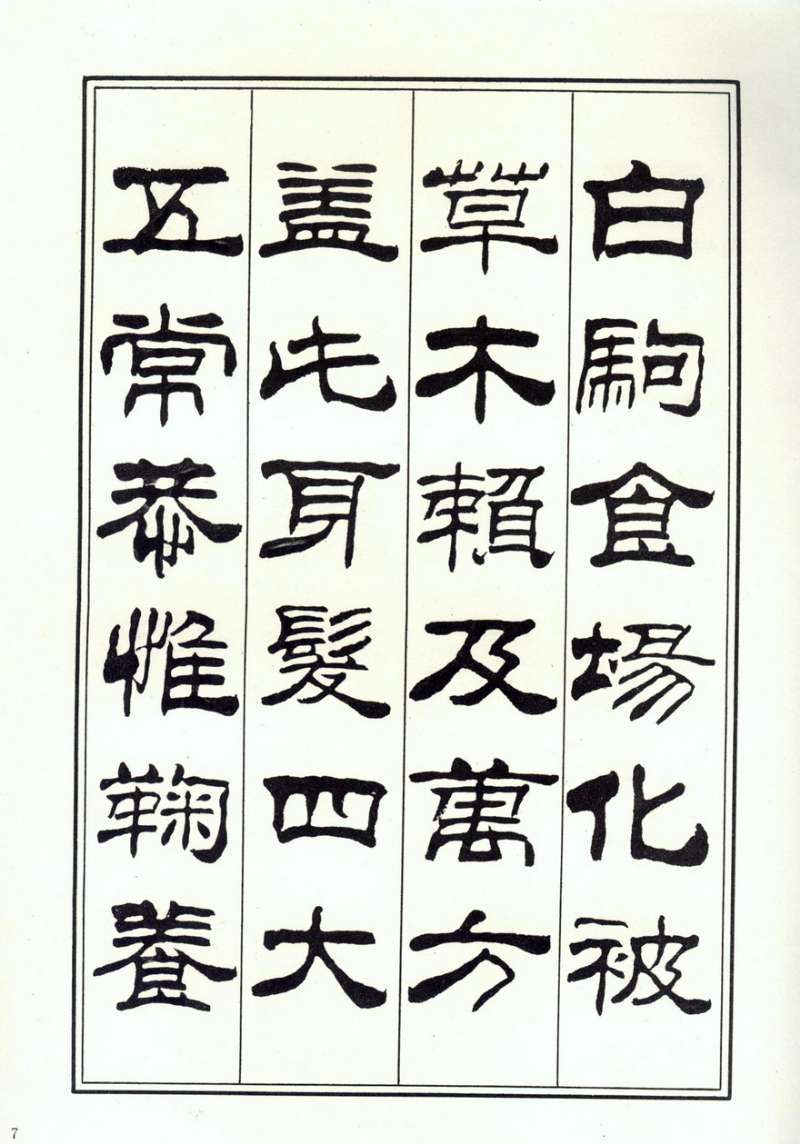 白駒食場化被
草木賴及萬方
盖此身髮四大
五常恭惟鞠養
7